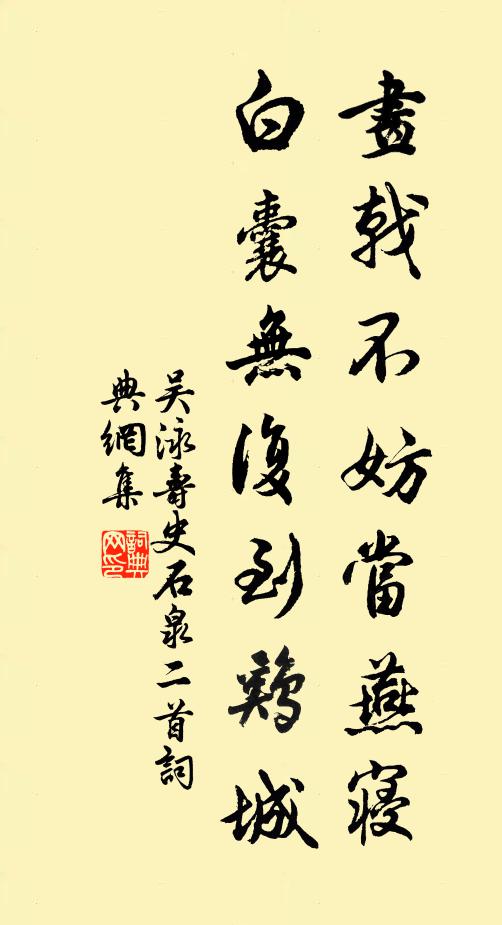 畫戟不妨當燕寢
白囊無復到鷄城
吴泳壽史石泉二首詞
典網集
詞典
网印